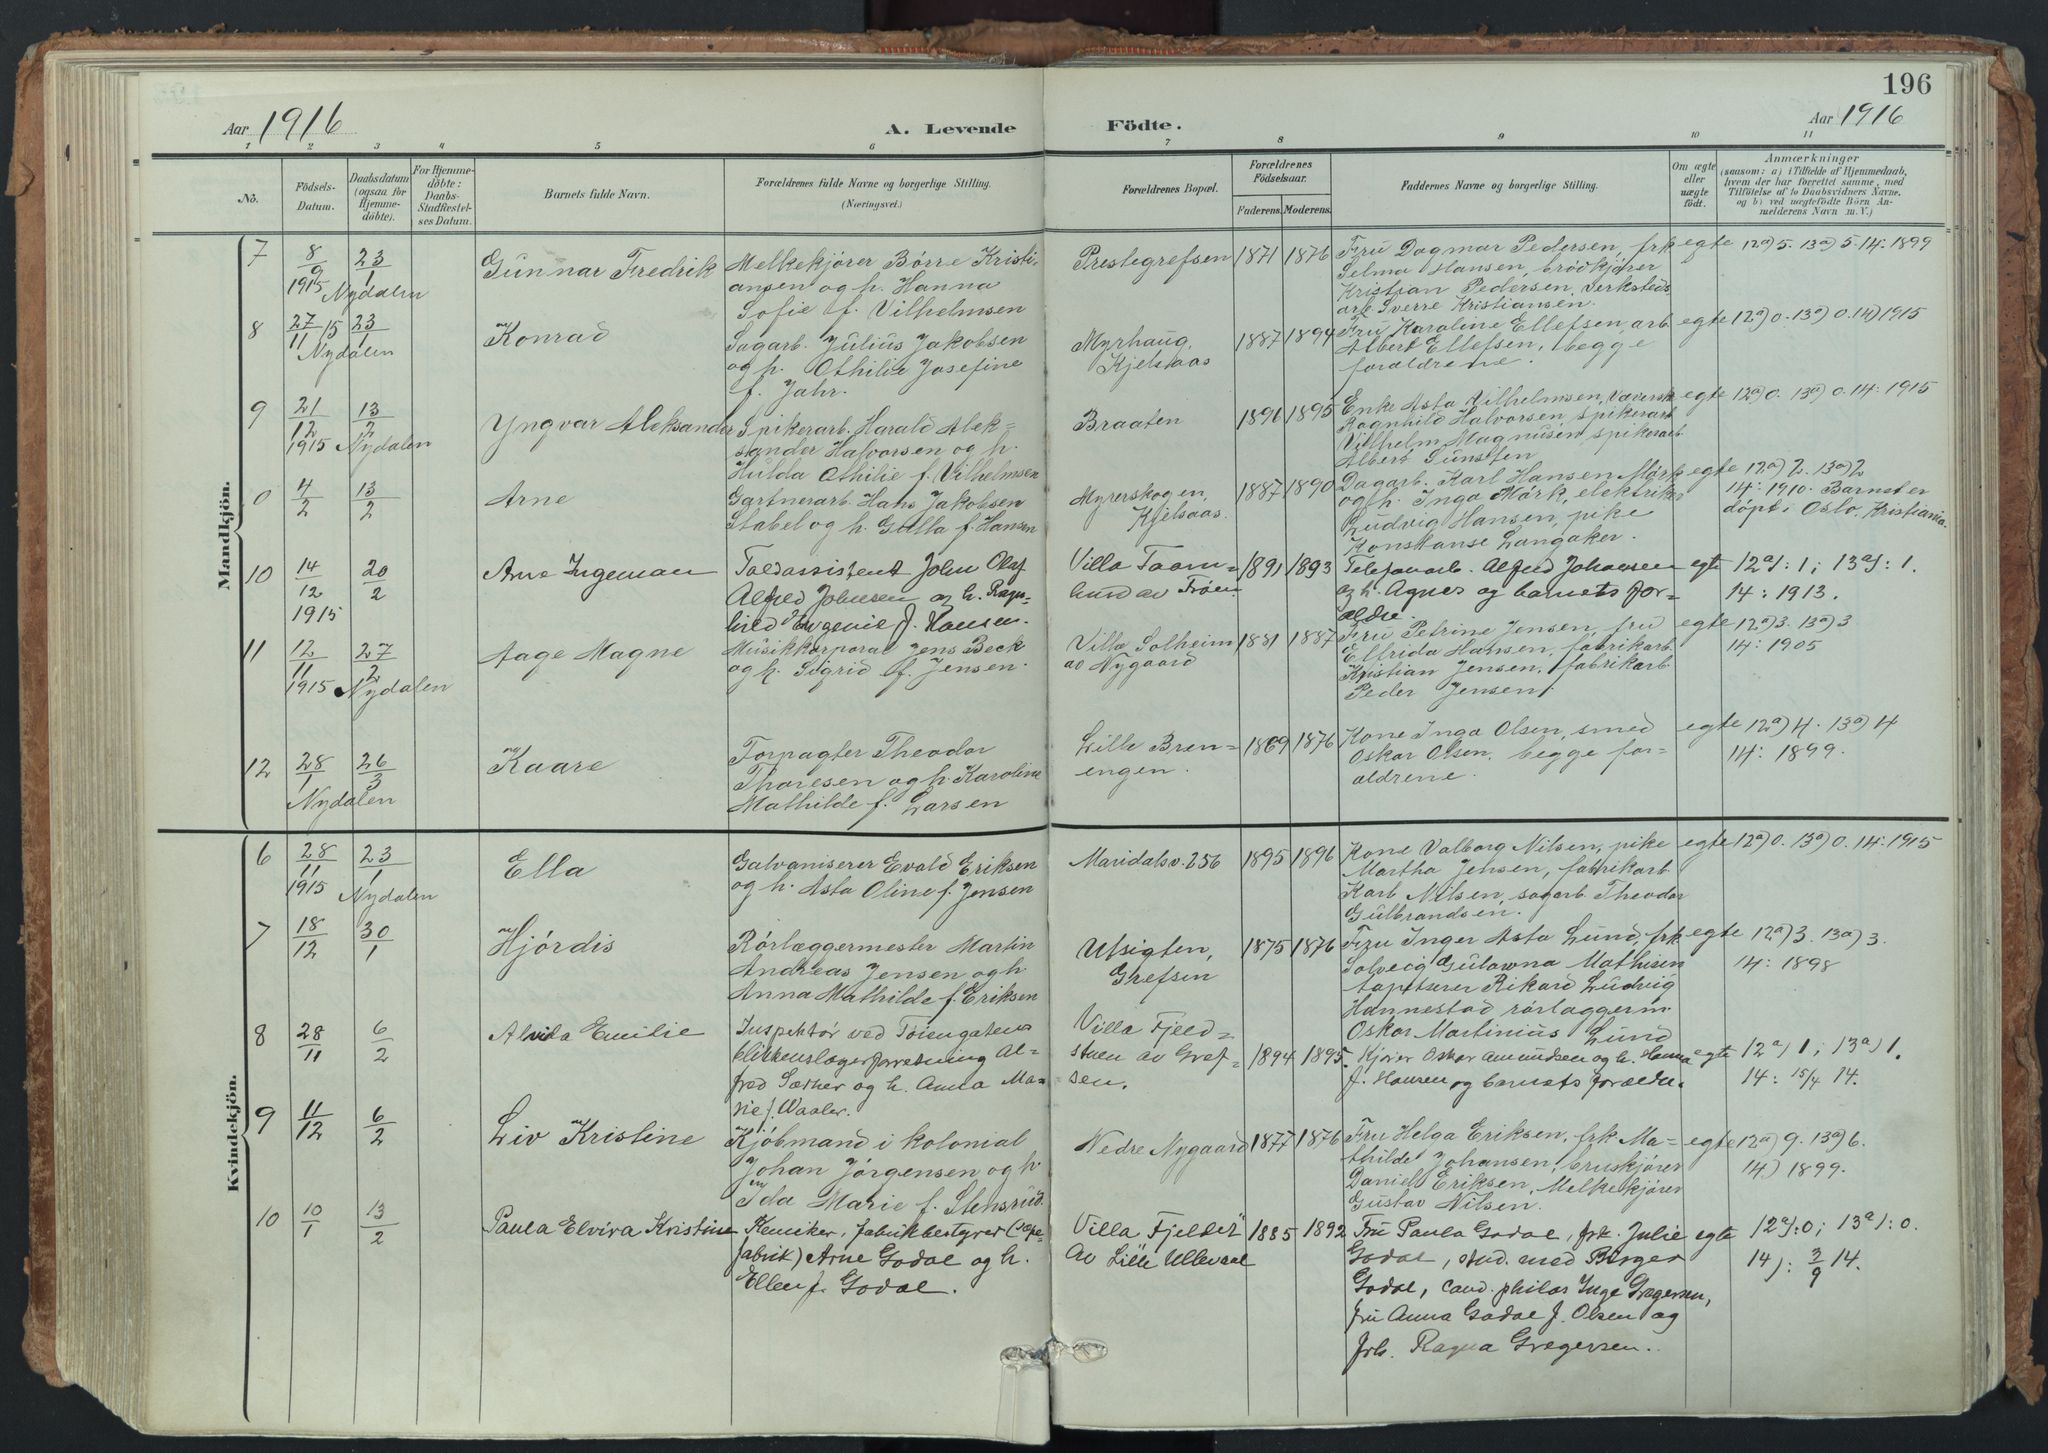 196
Aar 1916
A. Levende Födte.
Aar 1916
1 2 3 4 5 6 7 8 9 10 11
No.
Födsels-
Datum.
Daabsdatum
(ogsaa for
Hjemme-
döbte).
For Hjemme-
döbte:
Daabs-
Stadfæstel-
ses Datum.
Barnets fulde Navn.
Forældrenes fulde Navne og borgerlige Stilling.
(Næringsvei.)
Forældrenes Bopæl.
Forældrenes
Födselsaar.
Faderens. Moderens.
Faddernes Navne og borgerlige Stilling.
Om ægte
eller
uægte
født.
Anmærkninger
(saasom: a) i Tilfælde af Hjemmedaab,
hvem der har forrettet samme, med
Tilföielse af to Daabsvidners Navne.
og b) ved uægtefödte Börn An-
melderens Navn m. V.)
Mandkjön.
7
8/9
1915
23/1
Nydalen
Gunnar Fredrik
Melkekjører Børre Kristi-
ansen og h. Hanna
Sofie f. Vilhelmsen
Prestegrefsen
1871 1876
Fru Dagmar Pedersen, frk
Selma Hansen, brødkjører
Kristian Pedersen, verksteds
arb. Sverre Kristiansen.
egte
12a) 5. 13a) 5. 14: 1899
8
27/11 15
23/1
Nydalen
Konrad
Sagarb. Julius Jakobsen
og h. Othilie Josefine
f. Jahr.
Myrhaug,
Kjelsaas
1887 1894
Fru Karoline Ellefsen, arb
Albert Ellefsen, begge
forældrene.
egte
12a) 0. 13a) 0. 14) 1915
9
21/12
1915
13/2
Nydalen
Yngvar Aleksander
Spikerarb. Harald Alek-
sander Halvorsen og h.
Hulda Othilie f. Vilhelmsen
Braaten
1896 1895
Enke Asta Vilhelmsen, Væversk
Ragnhild Halvorsen, spikerarb
Vilhelm Magnusen, spikerarb
Albert
egte
12a) 0. 13a) 0. 14: 1915
0
4/2
13/2
Arne
Gartnerarb. Hans Jakobsen
Stabel og h. Gulla f. Hansen
Myrerskogen,
Kjelsaas.
1887 1890
Dagarb. Karl Hansen Mørk
og h. Inga Mørk, elektrik.
Ludvig Hansen, pike
Konstanse Langaker.
egte
12a) 2. 13a) 2
14: 1910. Barnet er
døpt i Oslo. Kristiania.
10
14/12
1915
20/2
Arne Ingeman
Toldassistent John Olaf
Alfred Johnsen og h. Ragn-
hild Eugenie f. Hansen.
Villa
lund av Frøen
1891 1893
Telefonarb. Alfred Johansen
og h. Agnes og barnets for-
ældre.
egte
12a): 1; 13a): 1.
14: 1913.
11
12/11
1915
27/2
Nydalen
Aage Magne
Musikkorporal Jens Beck
og h. Sigrid f. Jensen.
Villa Solheim
av Nygaard
1881 1887
Fru Petrine Jensen, fru
Elfrida Hansen, fabrikarb.
Kristian Jensen, fabrikarb.
Peder Jensen.
egte
12a) 3. 13a) 3
14: 1905
12
28/1
26/3
Nydalen
Kaare
Forpagter Theodor
Thoresen og h. Karoline
Mathilde f. Larsen
Lille Bren-
engen.
1869 1876
Kone Inga Olsen, smed
Oskar Olsen, begge for-
ældrene.
egte
12a) 4. 13a) 4
14: 1899.
Kvindekjön.
6
28/11
1915
23/1
Nydalen
Ella
Galvaniserer Evald Eriksen
og h. Asta Oline f. Jensen
Maridalsv. 256
1895 1896
Kone Valborg Nilsen, pike
Martha Jensen, fabrikarb.
Karl Nilsen, sagarb. Theodor
Gulbrandsen.
egte
12a) 0. 13a) 0. 14: 1915
7
18/12
30/1
Hjørdis
Rørlæggermester Martin
Andreas Jensen og h
Anna Mathilde f. Eriksen
Utsigten,
Grefsen
1875 1876
Fru Inger Asta Lund, frk
Solveig Mathisen
tapetserer Rikard Ludvig
Hannestad rørlæggerm.
Oskar Martinius Lund
egte
12a) 3. 13a) 3.
14: 1898
8
28/11
6/2
Alvida Emilie
Inspektør ved Tøiengatens
blikkenslagerforretning Al-
fred Sæther og h. Anna Ma-
rie f. Waaler.
Villa Fjeld-
stuen av Gref-
sen.
1894 1895.
Kjører Oskar Amundsen og h. Hanna
f. Hansen og barnets forældre.
egte
12a) 1; 13a) 1.
14: 15/4 14.
9
11/12
6/2
Liv Kristine
Kjøbmand i kolonial
Johan Jørgensen og h
Ida Marie f. Stensrud.
Nedre Nygaard
1877 1876
Fru Helga Eriksen, frk Ma-
thilde Johansen, bruskjører
Daniel Eriksen, Melkekjører
Gustav Nilsen.
egte
12a) 9. 13a) 6.
14) 1899.
10
10/1
13/2
Paula Elvira Kristine
Kemiker, fabrikbestyrer (sæpe-
fabrik) Arne Godal og h.
Ellen f. Godal.
Villa "Fjeldet"
av Lille Ullevaal
1885 1892
Fru Paula Godal, frk. Julie
Godal, stud. med Birger
Godal, cand. philos Inge Gregersen,
fru Anna Godal f. Olsen og
frk. Ragna Gregersen.
egte
12a): 0; 13a): 0.
14): 3/9 14.